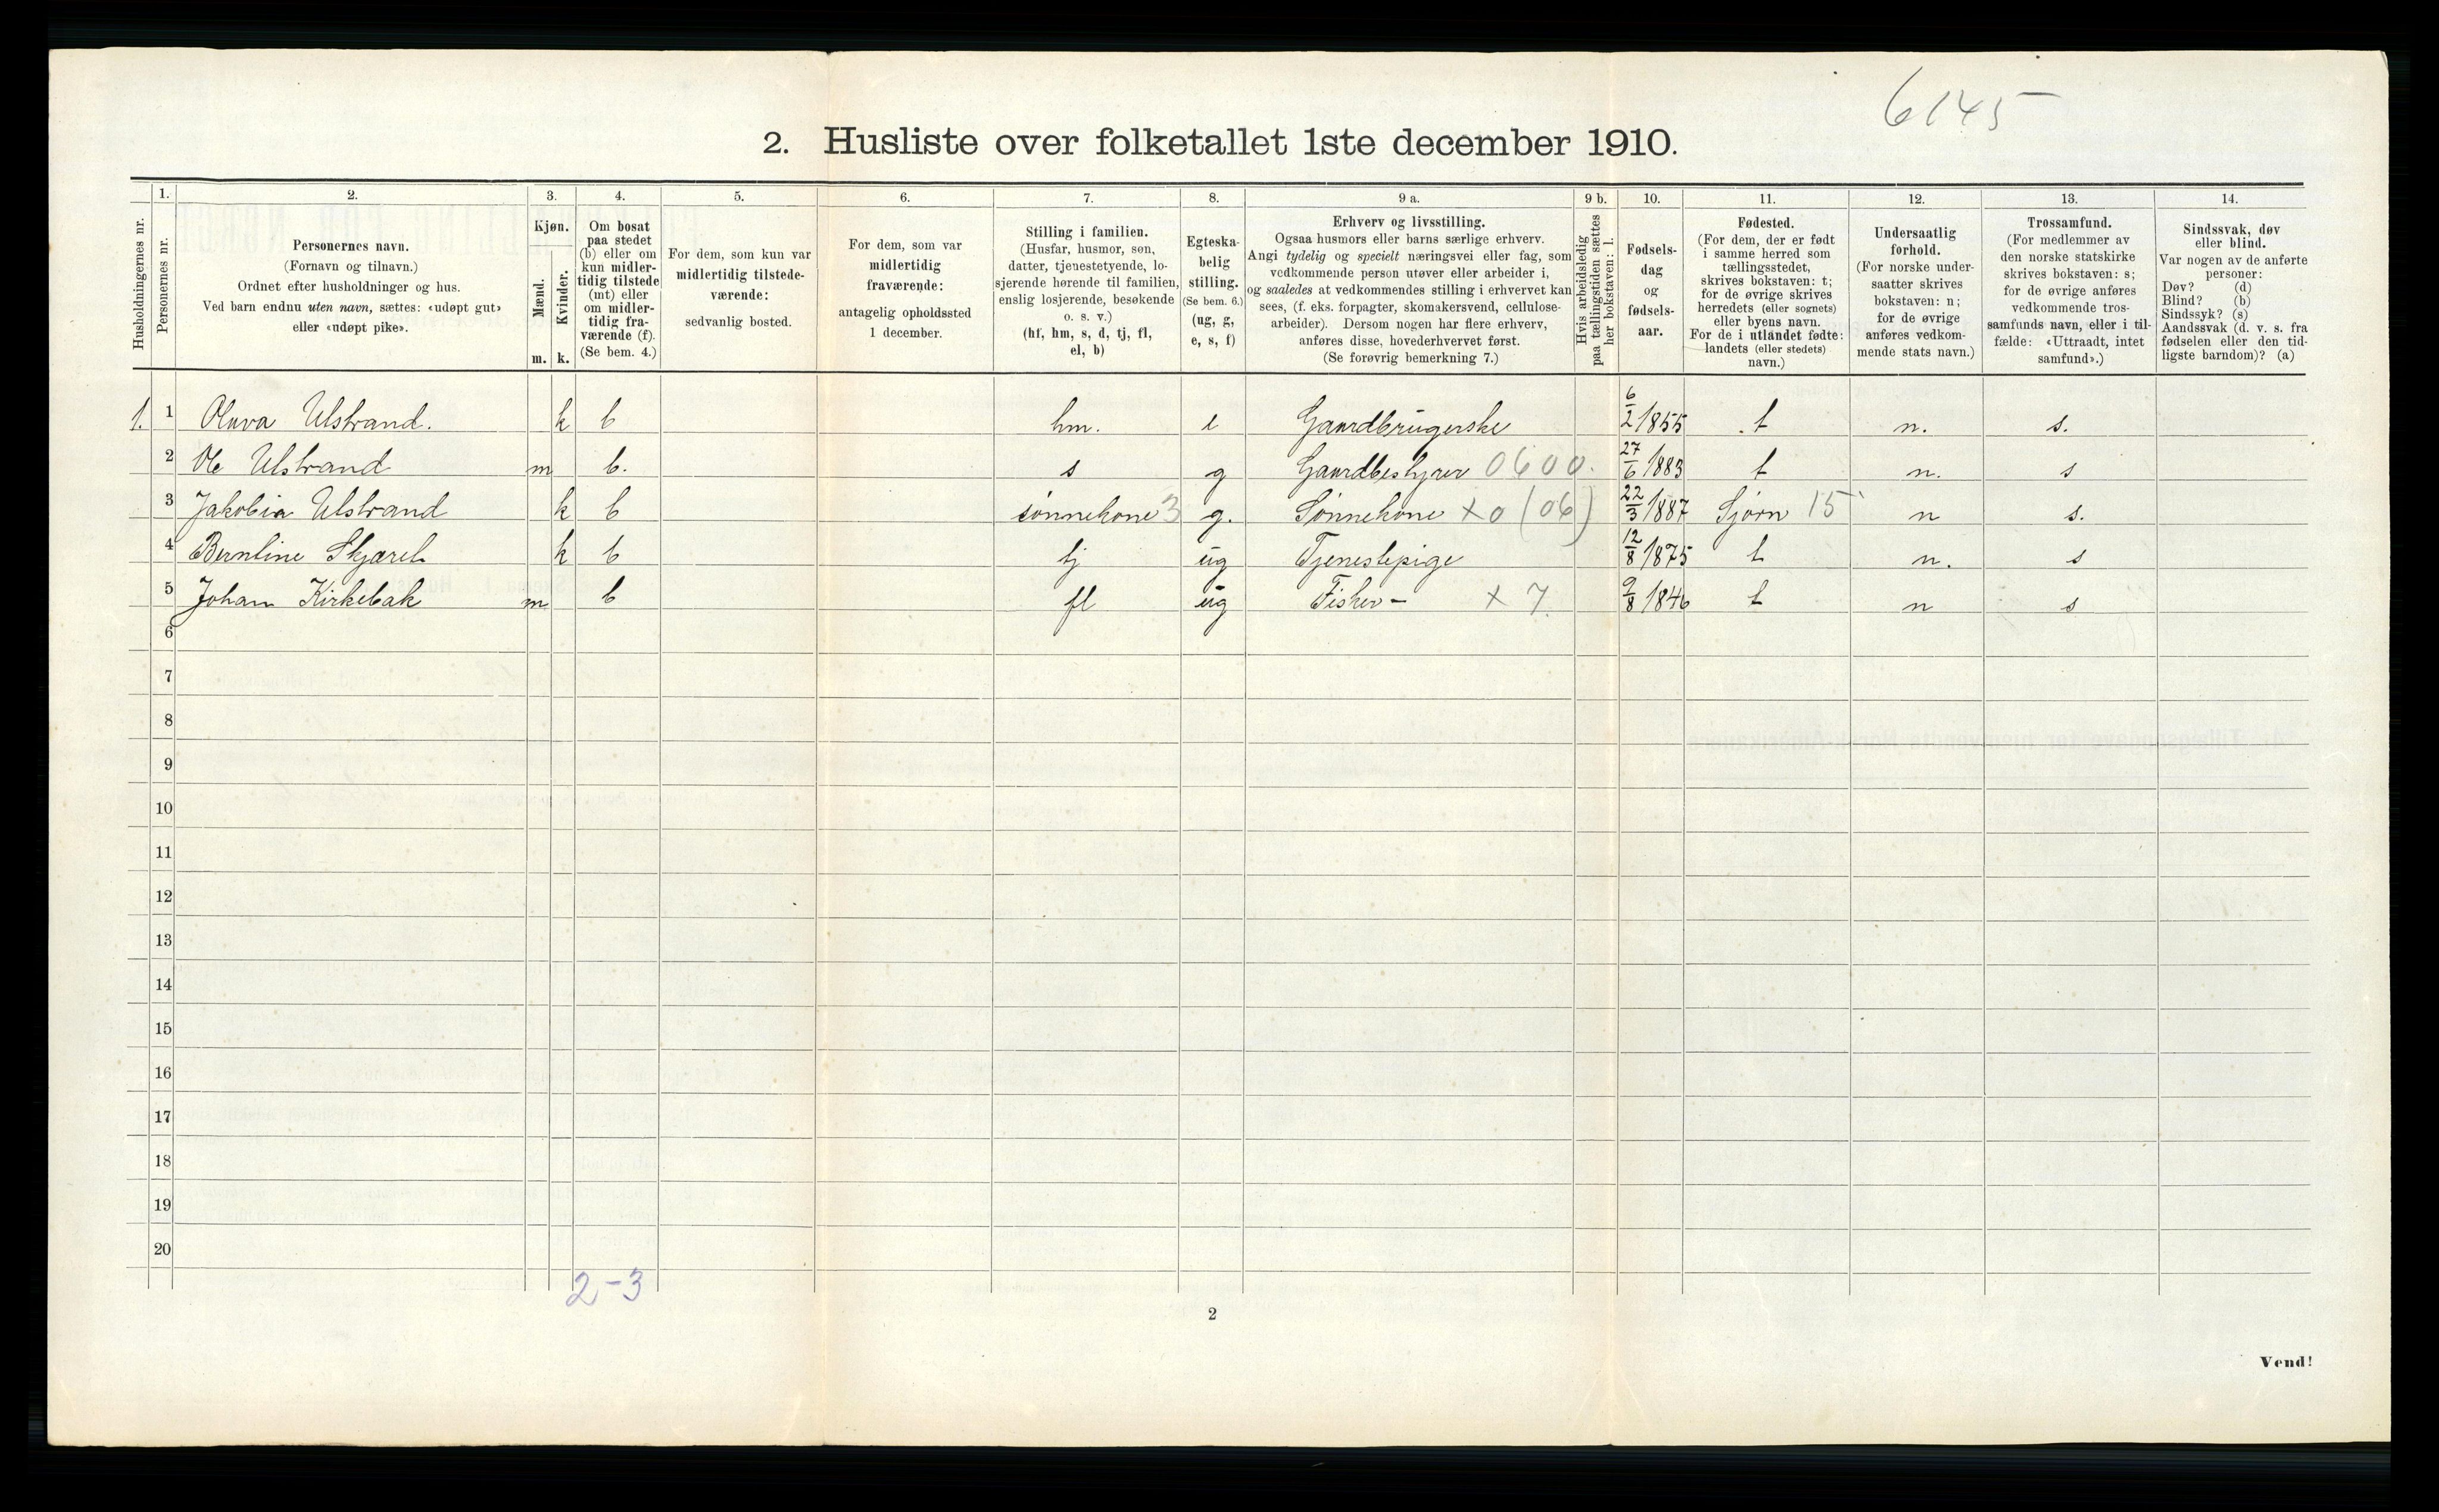 6145
2. Husliste over folketallet 1ste december 1910.
Husholdningernes nr.
1.
Personernes nr.
2.
Personernes navn.
(Fornavn og tilnavn.)
Ordnet efter husholdninger og hus.
Ved barn endnu uten navn, sættes: «udøpt gut»
eller «udøpt pike».
3.
Kjøn.
Mænd.
m.
Kvinder.
k.
4.
Om bosat
paa stedet
(b) eller om
kun midler-
tidig tilstede
(mt) eller
om midler-
tidig fra-
værende (f).
(Se bem. 4.)
5.
For dem, som kun var
midlertidig tilstede-
værende:
sedvanlig bosted.
6.
For dem, som var
midlertidig
fraværende:
antagelig opholdssted
1 december.
7.
Stilling i familien.
(Husfar, husmor, søn,
datter, tjenestetyende, lo-
sjerende hørende til familien,
enslig losjerende, besøkende
o. s. v.)
(hf, hm, s, d, tj, fl,
el, b)
8.
Egteska-
belig
stilling.
(Se bem. 6.)
(ug, g,
e, s, f)
9 a.
Erhverv og livsstilling.
Ogsaa husmors eller barns særlige erhverv.
Angi tydelig og specielt næringsvei eller fag, som
vedkommende person utøver eller arbeider i,
og saaledes at vedkommendes stilling i erhvervet kan
sees, (f. eks. forpagter, skomakersvend, cellulose-
arbeider). Dersom nogen har flere erhverv,
anføres disse, hovederhvervet først.
(Se forøvrig bemerkning 7.)
9 b.
Hvis arbeidsledig
paa tællingstiden sættes
her bokstaven: l.
10.
Fødsels-
dag
og
fødsels-
aar.
11.
Fødested.
(For dem, der er født
i samme herred som
tællingsstedet,
skrives bokstaven: t;
for de øvrige skrives
herredets (eller sognets)
eller byens navn.
For de i utlandet fødte:
landets (eller stedets)
navn.)
12.
Undersaatlig
forhold.
(For norske under-
saatter skrives
bokstaven: n;
for de øvrige
anføres vedkom-
mende stats navn.)
13.
Trossamfund.
(For medlemmer av
den norske statskirke
skrives bokstaven: s;
for de øvrige anføres
vedkommende tros-
samfunds navn, eller i til-
fælde: «Uttraadt, intet
samfund».)
14.
Sindssvak, døv
eller blind.
Var nogen av de anførte
personer:
Døv? (d)
Blind? (b)
Sindssyk? (s)
Aandssvak (d. v. s. fra
fødselen eller den tid-
ligste barndom)? (a)
1. 1 Oluva Ulstrand. k b hm. e Gaardbrugerske 6/2 1855 t n. s.
2 Ole Ulstrand m b. s g Gaardbestyrer 0600. 27/6 1883 t n. s
3 Jakobia Ulstrand k b sønnekone 3 g. Sønnekone x0 (06) 22/3 1887 Sjørn 15 n s.
4 Berntine Skjæret k b tj ug Tjenestepige 12/8 1875 t n. s
5 Johan Kirkebak m b fl ug Fisker - x 7. 9/8 1846 t n s
6
7
8
9
10
11
12
13
14
15
16
17
18
19
20
2-3
2
Vend!